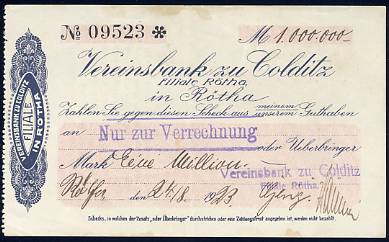 No 09523 *
M 1.000.000-
Vereinsbank zu Colditz
Filiale Rötha
in Rötha
Zahlen Sie gegen diesen Scheck aus meinem unserem Guthaben
an Nur zur Verrechnung oder Ueberbringer
Mark Eine Million
Vereinsbank zu Colditz
Filiale Rötha.
Rötha, den 24/8. 1923
Schecks, in welchen der Zusatz „oder Überbringer" durchstrichen oder eine Zahlungsfrist angegeben ist, werden nicht bezahlt.
VEREINSBANK ZU COLDITZ
FILIALE
IN RÖTHA